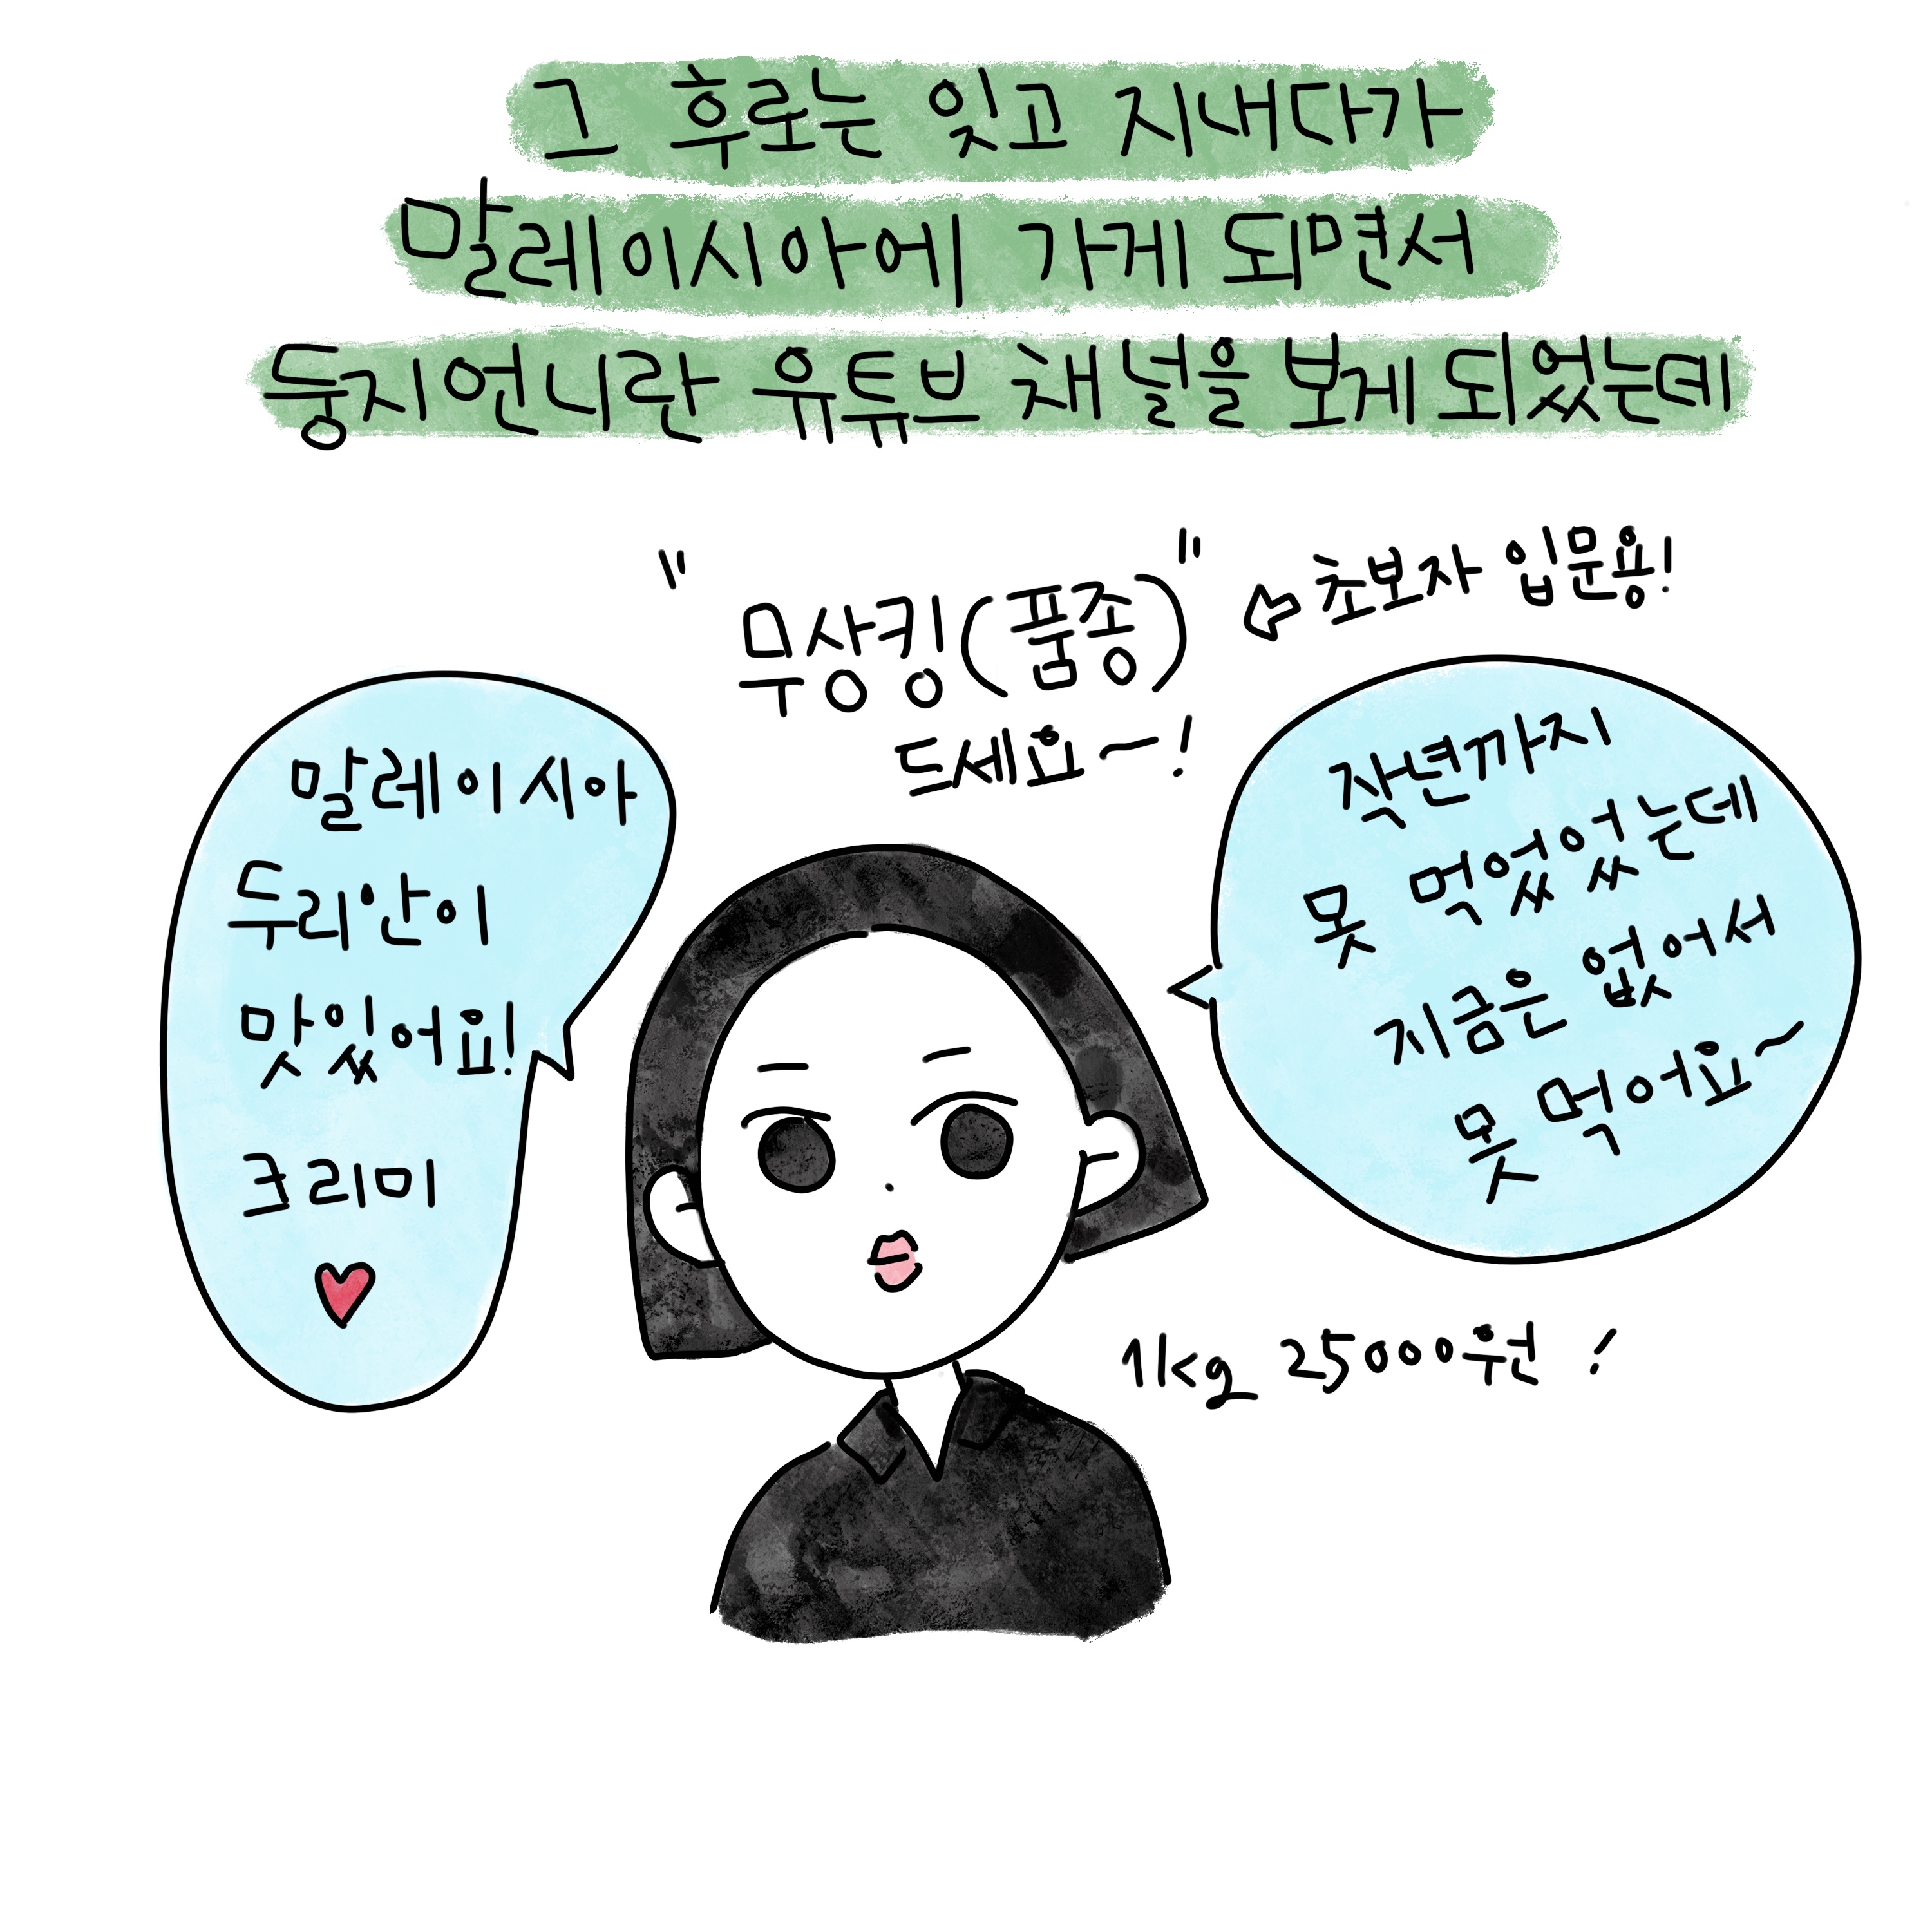 그 후로는 잊고 지내다가
말레이시아에 가게 되면서
둥지언니란 유튜브 채널을 보게 되었는데
"무상킹(품종)" ⇦ 초보자 입문용!
드세요~!
말레이시아
두리안이
맛있어요!
크리미
♥
작년까지
못 먹었었는데
지금은 없어서
못 먹어요~
1kg 25000원 !